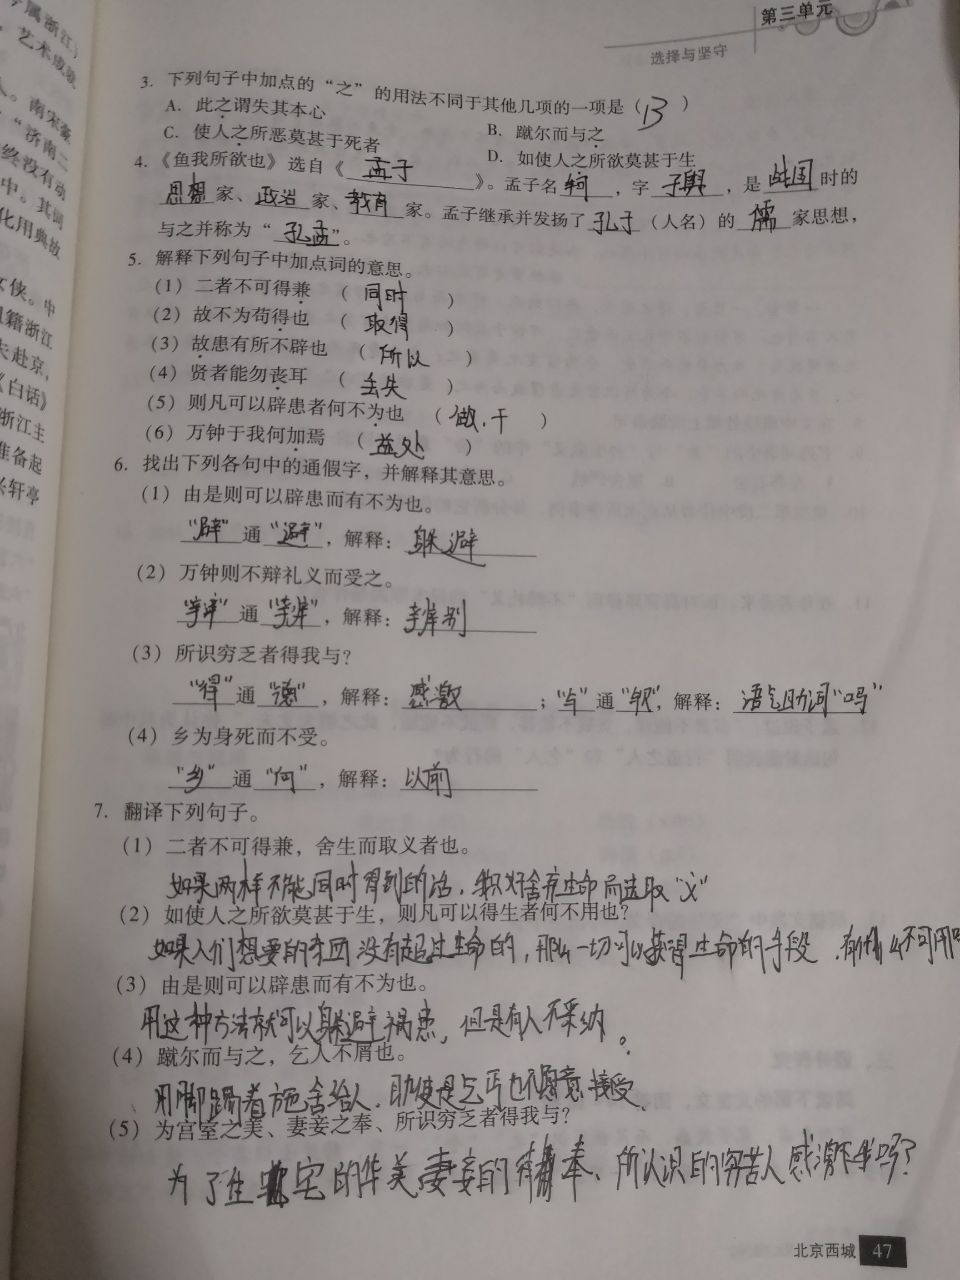 第三单元
选择与坚守
属浙江)
艺术成就
人。南宋豪
“济南二
终没有动
中。其词
化用典故
女侠。中
祖籍浙江
夫赴京，
《白话》
浙江主
准备起
轩亭
3. 下列句子中加点的“之”的用法不同于其他几项的一项是（ B ）
A. 此之谓失其本心
B. 蹴尔而与之
C. 使人之所恶莫甚于死者
D. 如使人之所欲莫甚于生
4.《鱼我所欲也》选自《 孟子 》。孟子名 轲 ，字 子舆 ，是 战国 时的
思想 家、政治 家、教育 家。孟子继承并发扬了 孔子 （人名）的 儒 家思想，
与之并称为“ 孔孟 ”。
5. 解释下列句子中加点词的意思。
(1) 二者不可得兼 （ 同时 ）
(2) 故不为苟得也 （ 取得 ）
(3) 故患有所不辟也 （ 所以 ）
(4) 贤者能勿丧耳 （ 丢失 ）
(5) 则凡可以辟患者何不为也 （ 做，干 ）
(6) 万钟于我何加焉 （ 益处 ）
6. 找出下列各句中的通假字，并解释其意思。
(1) 由是则可以辟患而有不为也。
“辟” 通 “避” ，解释： 躲避
(2) 万钟则不辩礼义而受之。
“辩” 通 “辨” ，解释： 辨别
(3) 所识穷乏者得我与？
“得” 通 “德” ，解释： 感激 ；“与” 通 “欤”，解释： 语气助词“吗”
(4) 乡为身死而不受。
“乡” 通 “向” ，解释： 以前
7. 翻译下列句子。
(1) 二者不可得兼，舍生而取义者也。
如果两样不能同时得到的话，我只好舍弃生命而选取“义”
(2) 如使人之所欲莫甚于生，则凡可以得生者何不用也？
如果人们想要的东西没有超过生命的，那么一切可以获得生命的手段，有什么不可用
(3) 由是则可以辟患而有不为也。
用这种方法就可以躲避祸患，但是有人不采纳。
(4) 蹴尔而与之，乞人不屑也。
用脚踢着施舍给人，即使是乞丐也不愿意接受。
(5) 为宫室之美、妻妾之奉、所识穷乏者得我与？
为了住宅的华美妻妾的侍奉、所认识的穷苦人感激我吗？
北京西城 47